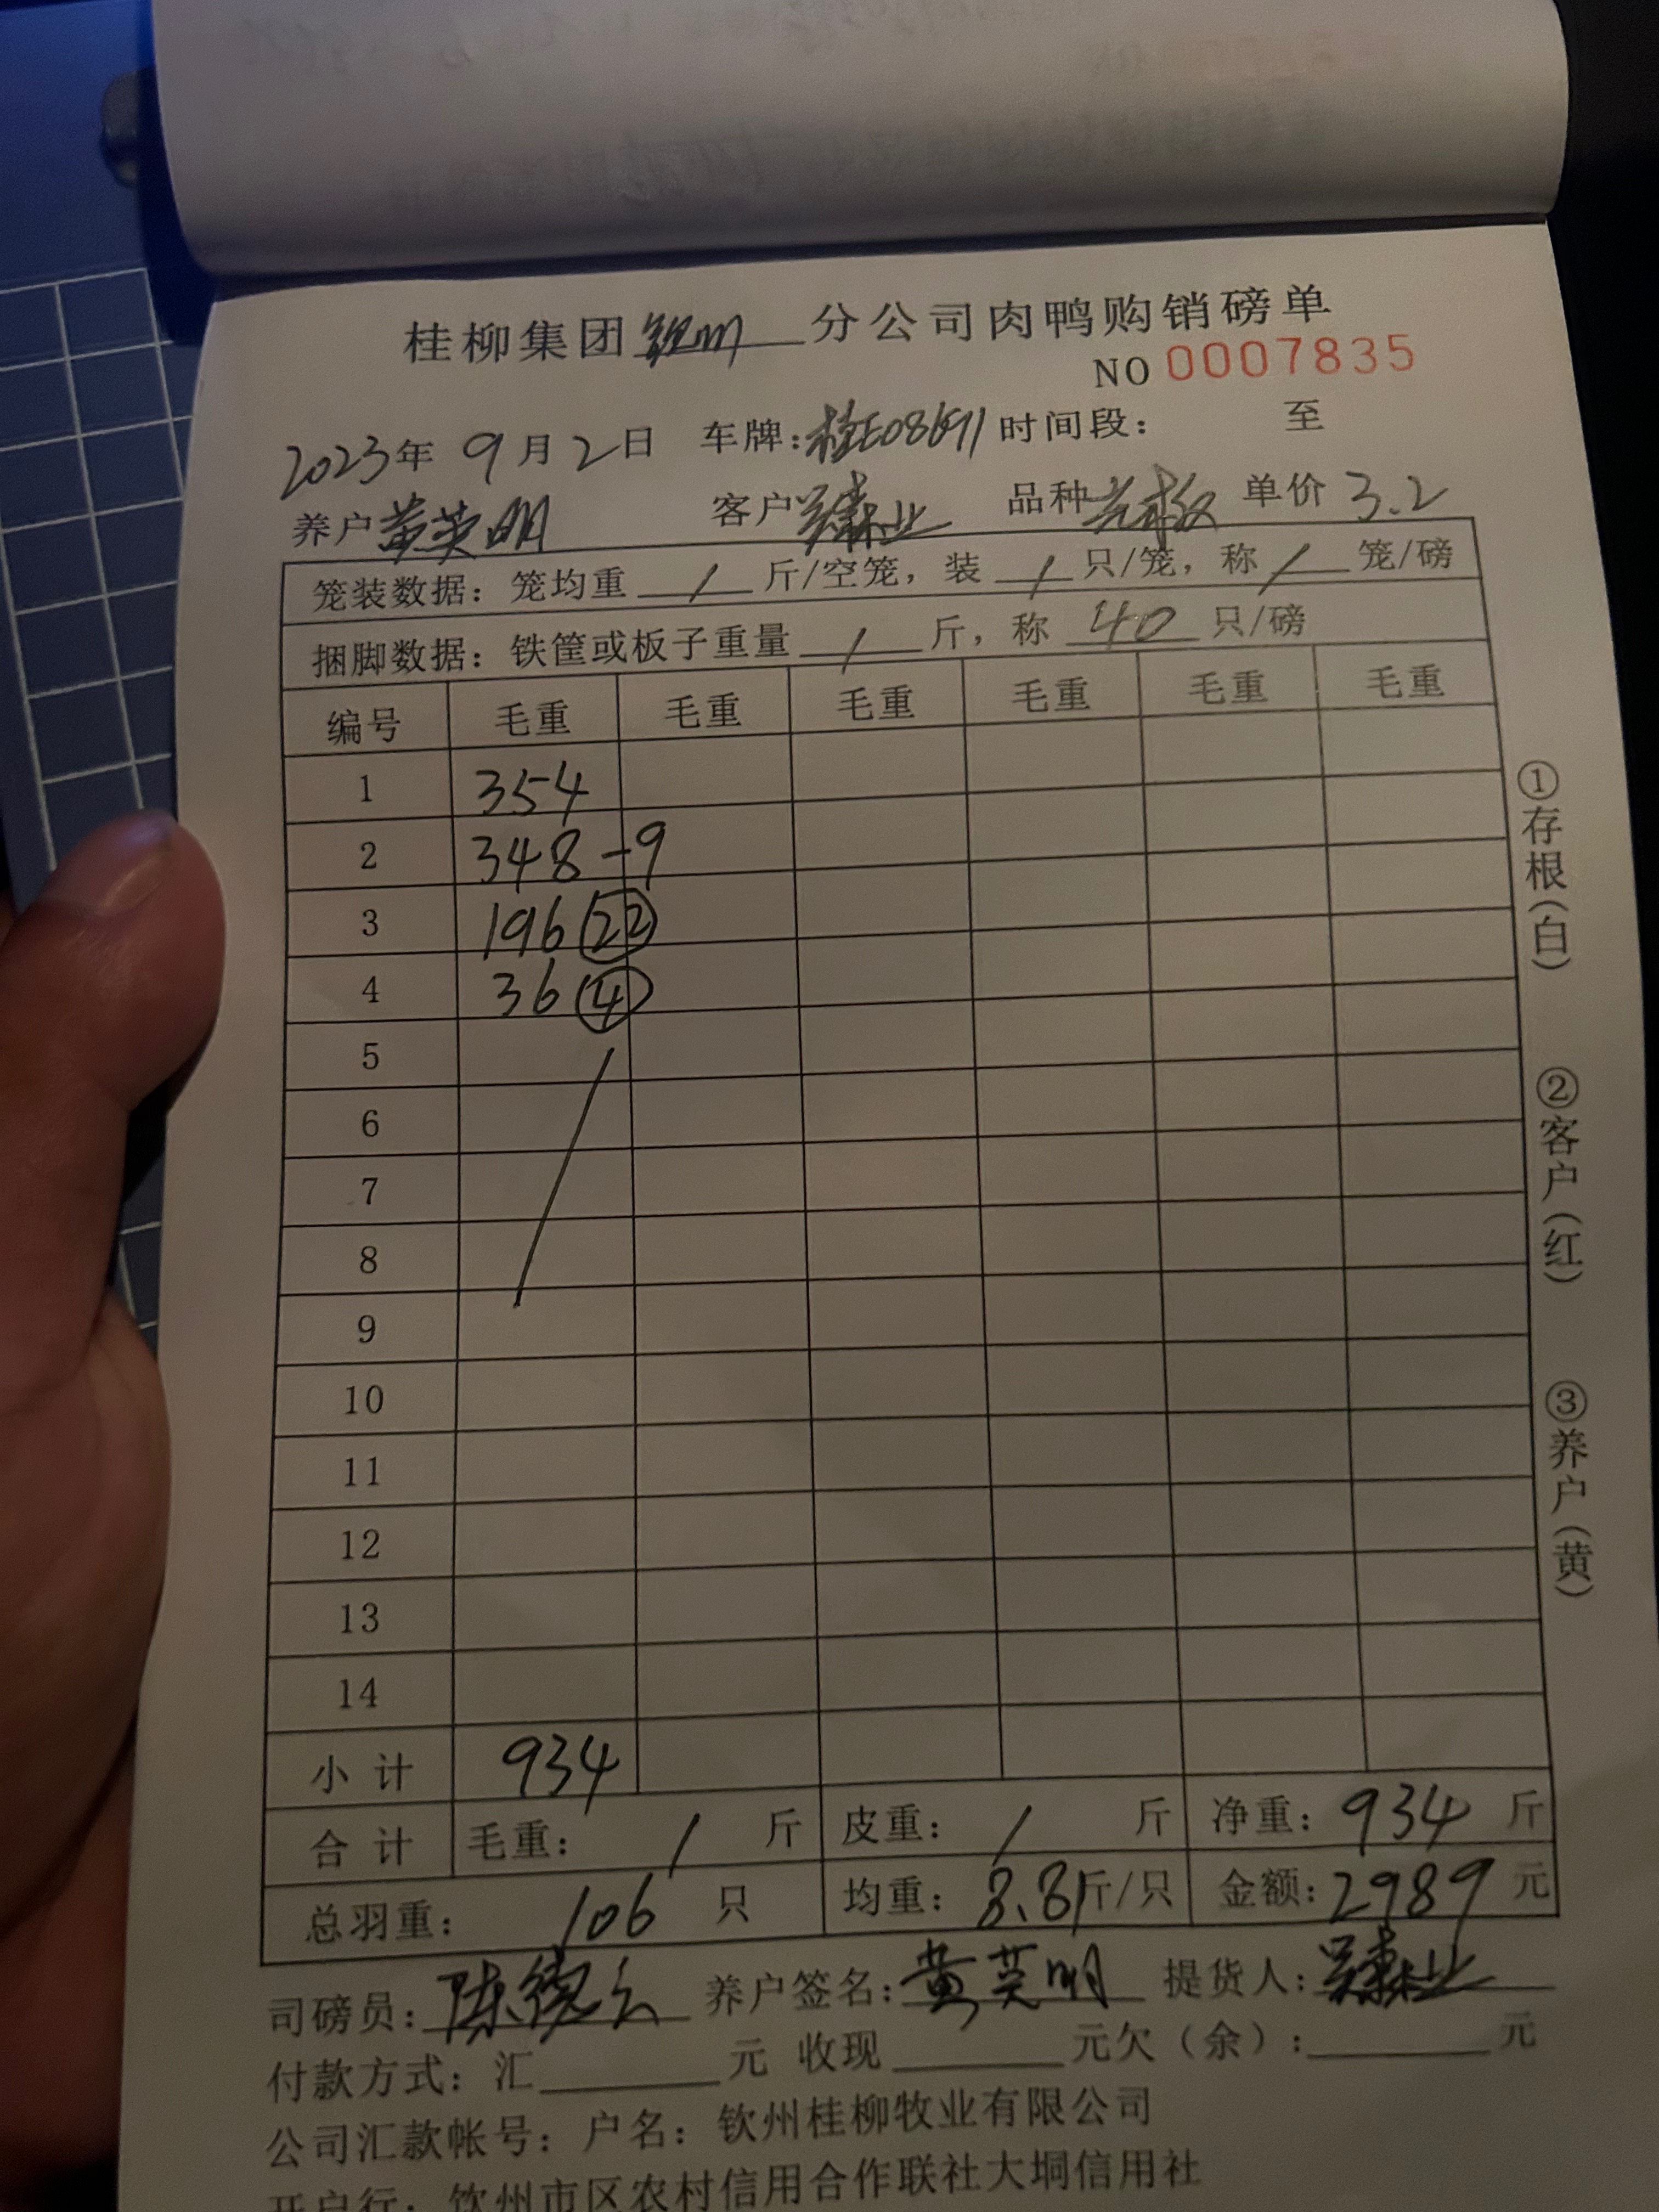 桂柳集团钦州分公司肉鸭购销磅单
NO 0007835
2023年 9月2日 车牌:桂E08691 时间段: 至
养户黄英明 客户 品种 单价 3.2
笼装数据:笼均重 / 斤/空笼,装 / 只/笼,称 / 笼/磅
捆脚数据:铁筐或板子重量 / 斤,称 40 只/磅
编号 毛重 毛重 毛重 毛重 毛重 毛重
1 354
2 348-9
3 196 (22)
4 36 (4)
5
6
7
8
9
10
11
12
13
14
小计 934
合计 毛重: / 斤 皮重: / 斤 净重:934 斤
总羽重: 106 只 均重:8.81斤/只 金额:2989 元
司磅员:陈德云 养户签名:黄英明 提货人:
付款方式:汇 元 收现 元欠(余): 元
公司汇款帐号:户名:钦州桂柳牧业有限公司
开户行:钦州市区农村信用合作联社大垌信用社
①存根(白) ②客户(红) ③养户(黄)